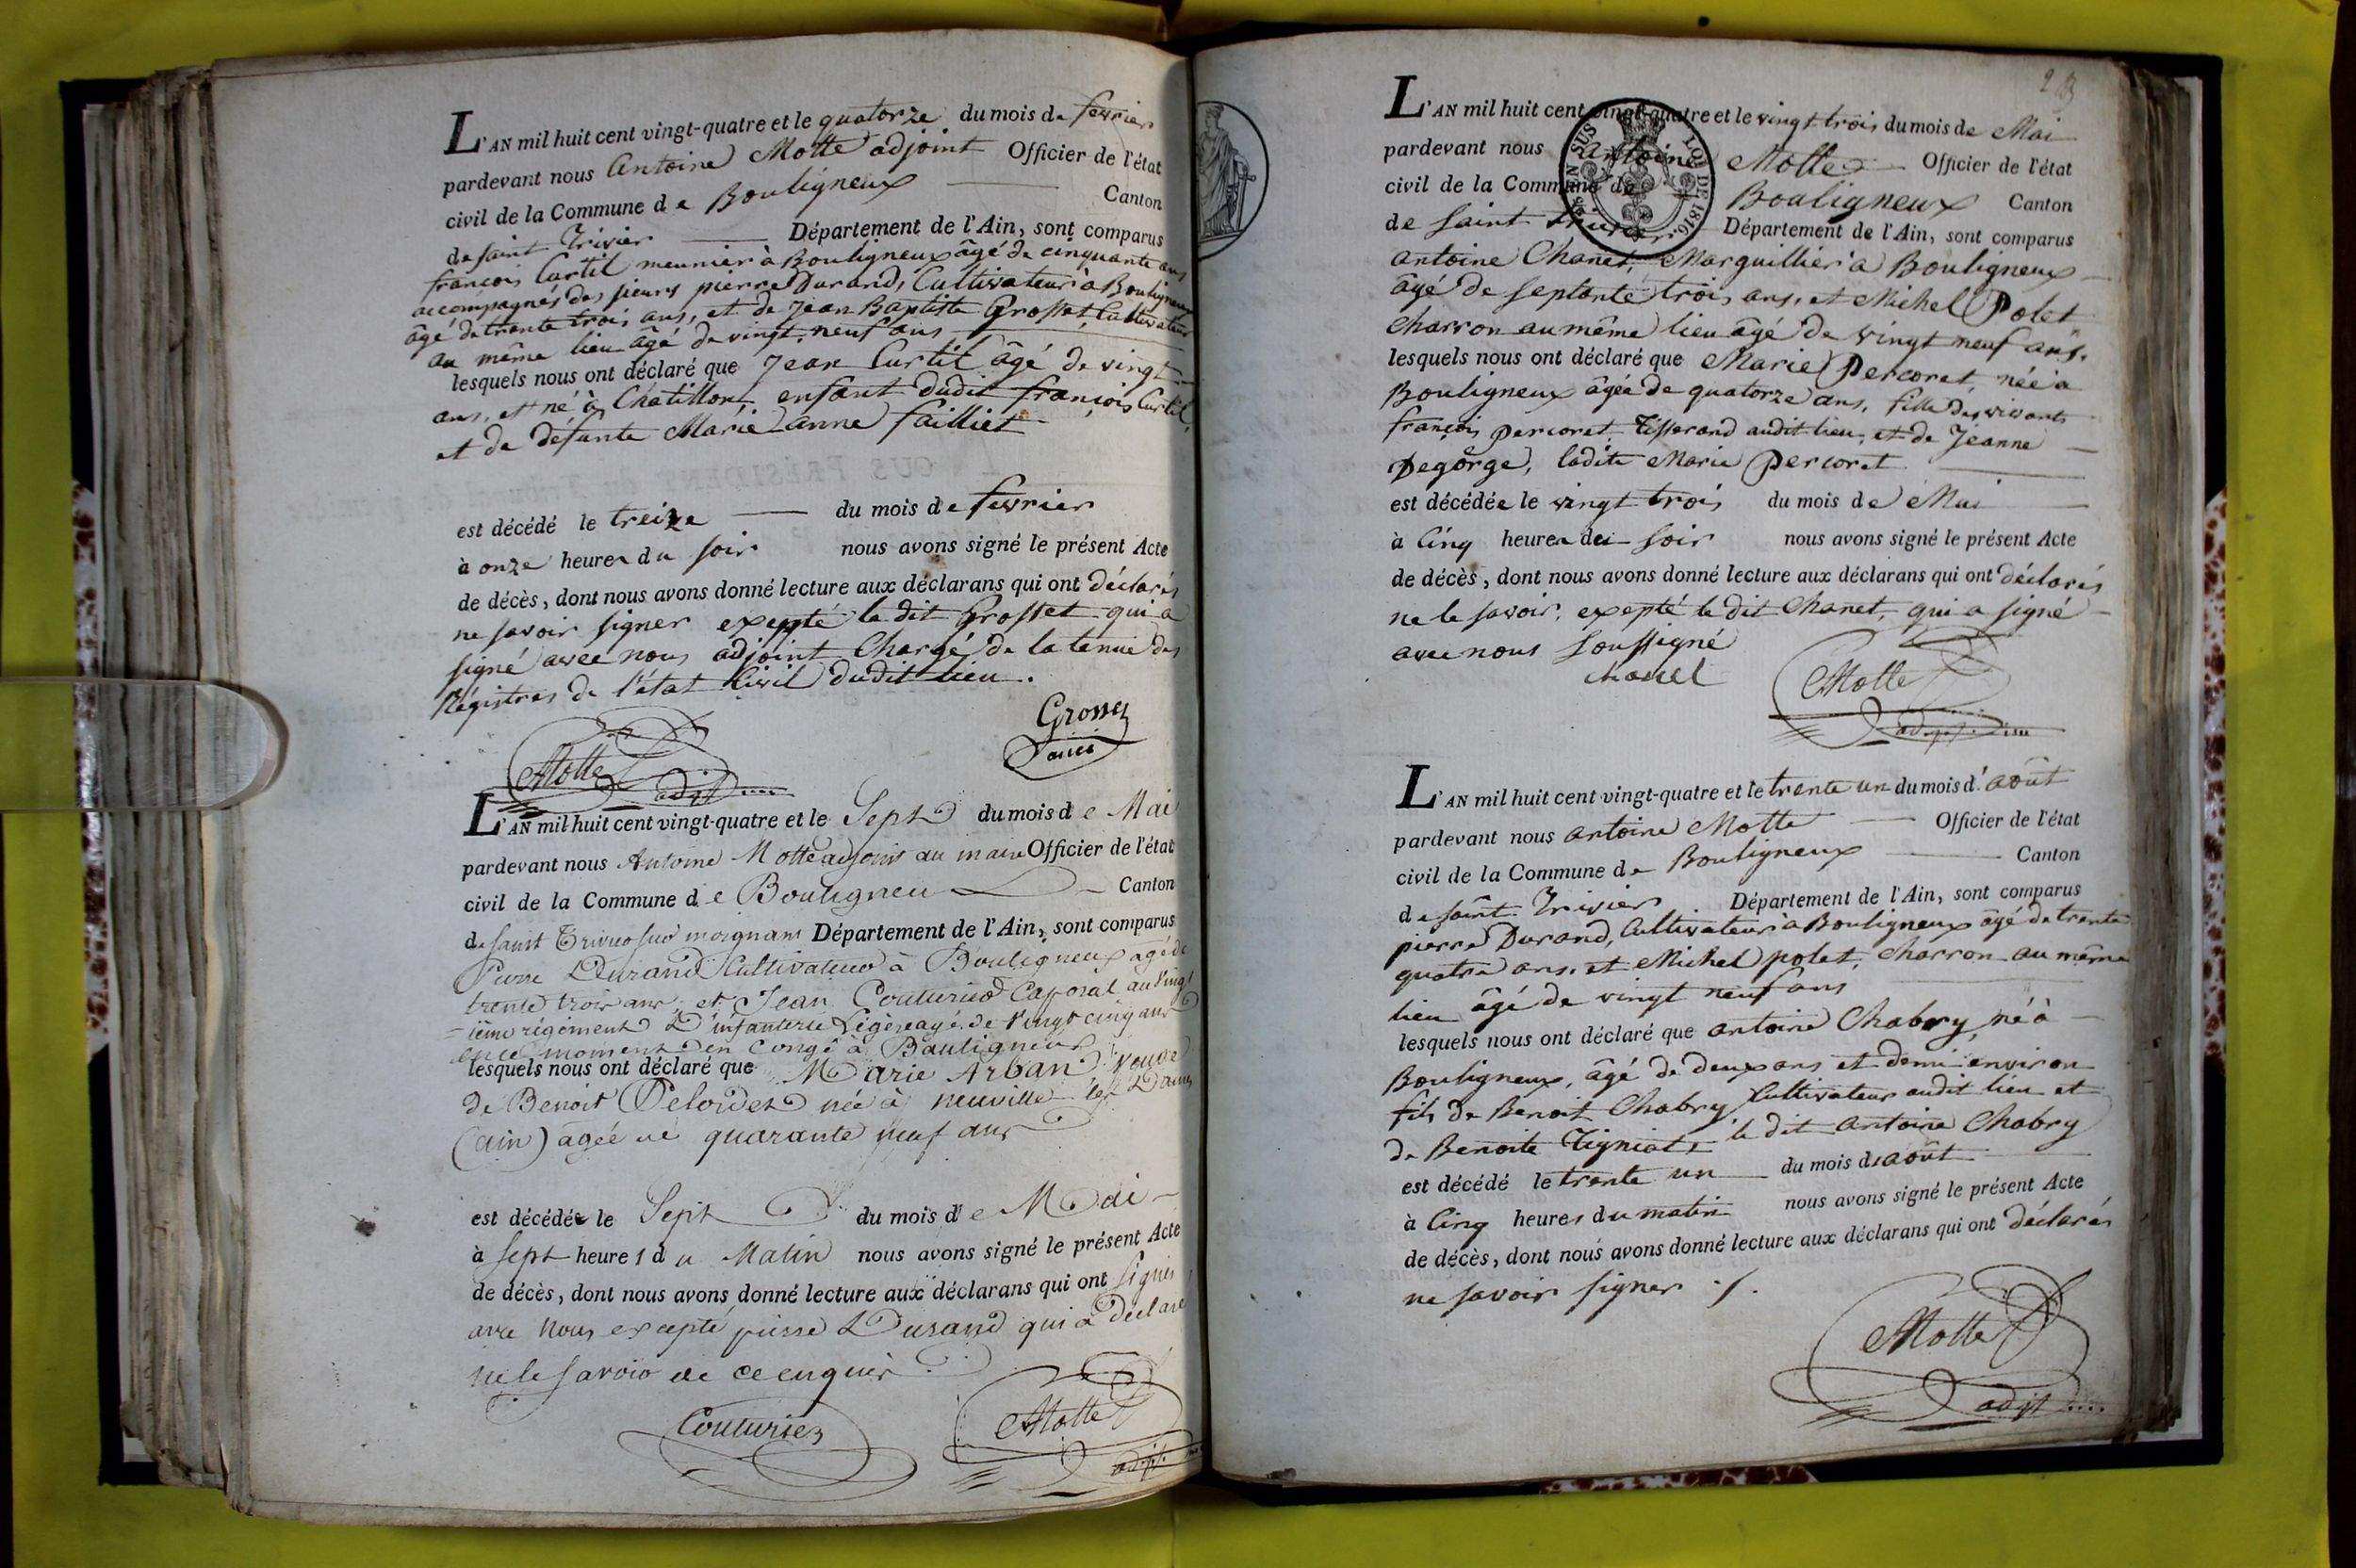 L'AN mil huit cent vingt-quatre et le quatorze du mois de fevrier
pardevant nous Antoine Motte adjoint Officier de l'état
civil de la Commune de Bouligneux Canton
de saint Trivier Département de l'Ain, sont comparus
françois Curtil meunier à Bouligneux âgé de cinquante ans
accompagnés des sieurs pierre Durand, Cultivateur à Bouligneux
âgé de trente trois ans, et de Jean Baptiste Grosset, Cultivateur
au même lieu âgé de vingt neuf ans
lesquels nous ont déclaré que Jean Curtil âgé de vingt
ans, et né à Châtillon, enfant dudit françois Curtil,
et de défunte Marie anne failliet
est décédé le treize du mois de fevrier
à onze heures du soir nous avons signé le présent Acte
de décès, dont nous avons donné lecture aux déclarans qui ont déclarés
ne savoir signer expepté le dit Grosset qui a
signé avec nous adjoint Chargé de la tenue des
Régistres de l'état Civil dudit lieu.
Grosset
Motte adjt
L'AN mil huit cent vingt-quatre et le Sept du mois de Mai
pardevant nous Antoine Motte adjoint au maire Officier de l'état
civil de la Commune de Bouligneu Canton
de saint Trivier sur moignans Département de l'Ain, sont comparus
Pierre Durand Cultivateur à Bouligneux agé de
trente trois ans, et Jean Couturier Caporal au Vingt
ième régiment D'infanterie Légère agé de Vingt cinq ans
en ce moment en Congé à Bouligneux
lesquels nous ont déclaré que Marie Arban Veuve
de Benoit née à neuville les Dames
(ain) agée de quarante neuf ans
est décédée le Sept du mois de Mai
à sept heures du Matin nous avons signé le présent Acte
de décès, dont nous avons donné lecture aux déclarans qui ont signés
avec nous excepté pierre Durand qui a déclaré
ne le savoir de ce enquis
Couturier
Motte adjt
23
L'AN mil huit cent vingt-quatre et le vingt trois du mois de Mai
pardevant nous Antoine Motte Officier de l'état
civil de la Commune de Bouligneux Canton
de saint trivier Département de l'Ain, sont comparus
antoine Chanet, Marguillier à Bouligneux
âgé de septante trois ans, et Michel Polet
charron au même lieu âgé de vingt neuf ans.
lesquels nous ont déclaré que Marie Percoret, née à
Bouligneux âgée de quatorze ans, fille des vivants
françois percoret Tisserand audit lieu, et de Jeanne
Degorge, ladite Marie percoret
est décédée le vingt trois du mois de Mai
à Cinq heures du soir nous avons signé le présent Acte
de décès, dont nous avons donné lecture aux déclarans qui ont déclarés
ne le savoir, expepté le dit Chanet, qui a signé
avec nous Soussigné
chanel
Motte
TIMBRE EN SUS LOI DE 1816
L'AN mil huit cent vingt-quatre et le trente un du mois d'août
pardevant nous antoine Motte Officier de l'état
civil de la Commune de Bouligneux Canton
de saint Trivier Département de l'Ain, sont comparus
pierre Durand, Cultivateur à Bouligneux âgé de trente
quatre ans. et Michel polet, charron au même
lieu âgé de vingt neuf ans
lesquels nous ont déclaré que antoine Chabry, né à
Bouligneux, âgé de deux ans et demi environ
fils de Benoit Chabry Cultivateur audit lieu et
de Benoite Tigniat, le dit antoine Chabry
est décédé le trente un du mois d'août
à Cinq heures du matin nous avons signé le présent Acte
de décès, dont nous avons donné lecture aux déclarans qui ont déclarés
ne savoir signer
Motte adjt